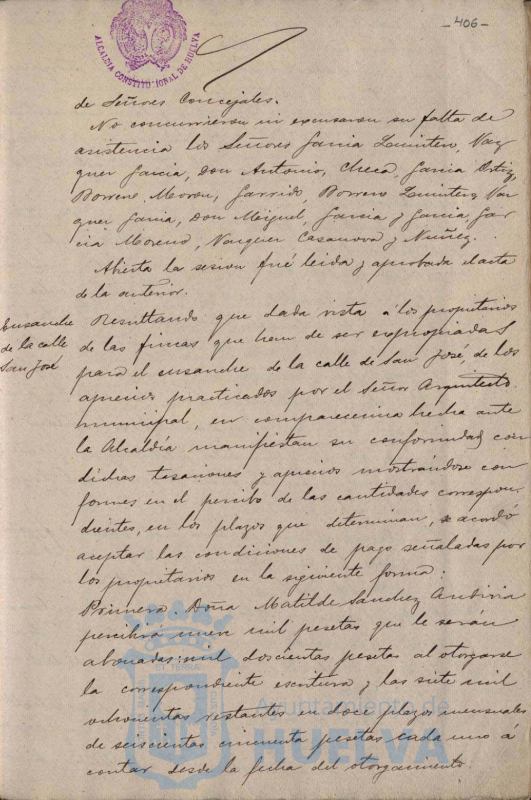 - 406 -
ALCALDIA CONSTITUCIONAL DE HUELVA
de Señores Concejales.
No concurrieron ni excusaron su falta de
asistencia los Señores Garcia Quintero, Vaz
quez Garcia, Don Antonio, Checa, Garcia Ortiz,
Borrero, Moron, Garrido, Borrero Quintero, Vaz
quez Garcia, Don Miguel, Garcia y Garcia, Gar
cia Moreno, Vazquez Casanova y Nuñez.
Abierta la sesion fué leida y aprobada el acta
de la anterior.
Ensanche
de la calle
San José
Resultando que dada vista á los propietarios
de las fincas que hem de ser expropiadas
para el ensanche de la calle de San José, de los
aprecios practicados por el Señor Arquitecto
municipal, en comparecencia hecha ante
la Alcaldía manifiestan su conformidad con
dichas tasaciones y aprecios mostrándose con
formes en el percibo de las cantidades correspon
dientes, en los plazos que determinan, se acordó
aceptar las condiciones de pago señaladas por
los propietarios en la siguiente forma:
Primera. Doña Matilde Sanchez
percibirá nueve mil pesetas que le serán
abonadas: mil doscientas pesetas al otorgarse
la correspondiente escritura y las siete mil
ochocientas restantes en doce plazos mensuales
de seiscientas cincuenta pesetas cada uno á
contar desde la fecha del otorgamiento.
Ayuntamiento de
HUELVA